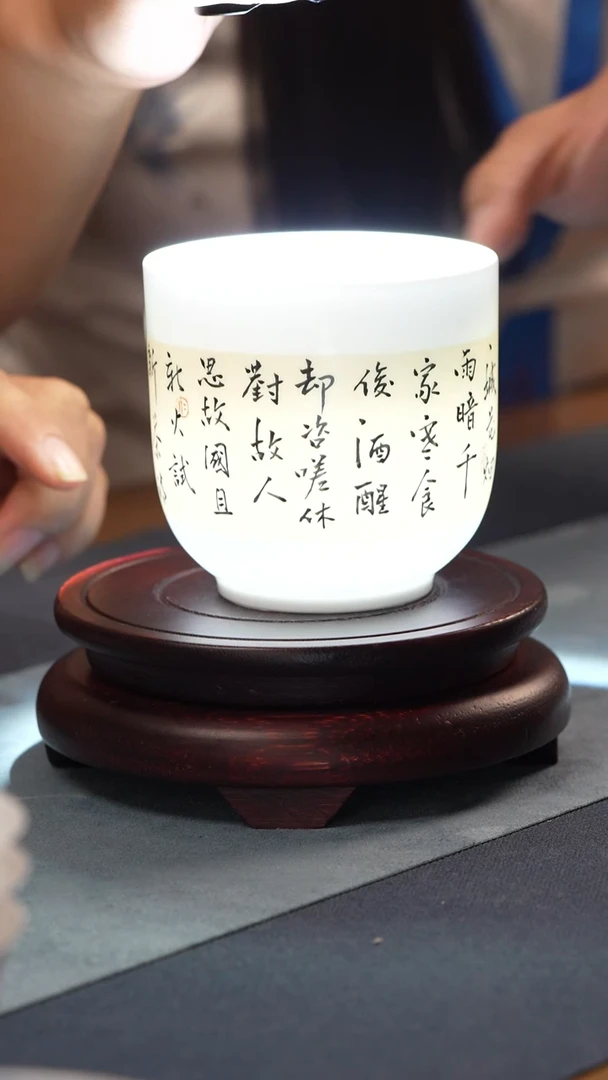 城花
雨暗千
家寒食
後酒醒
却咨嗟休
對故人
思故國且
新火試
新茶